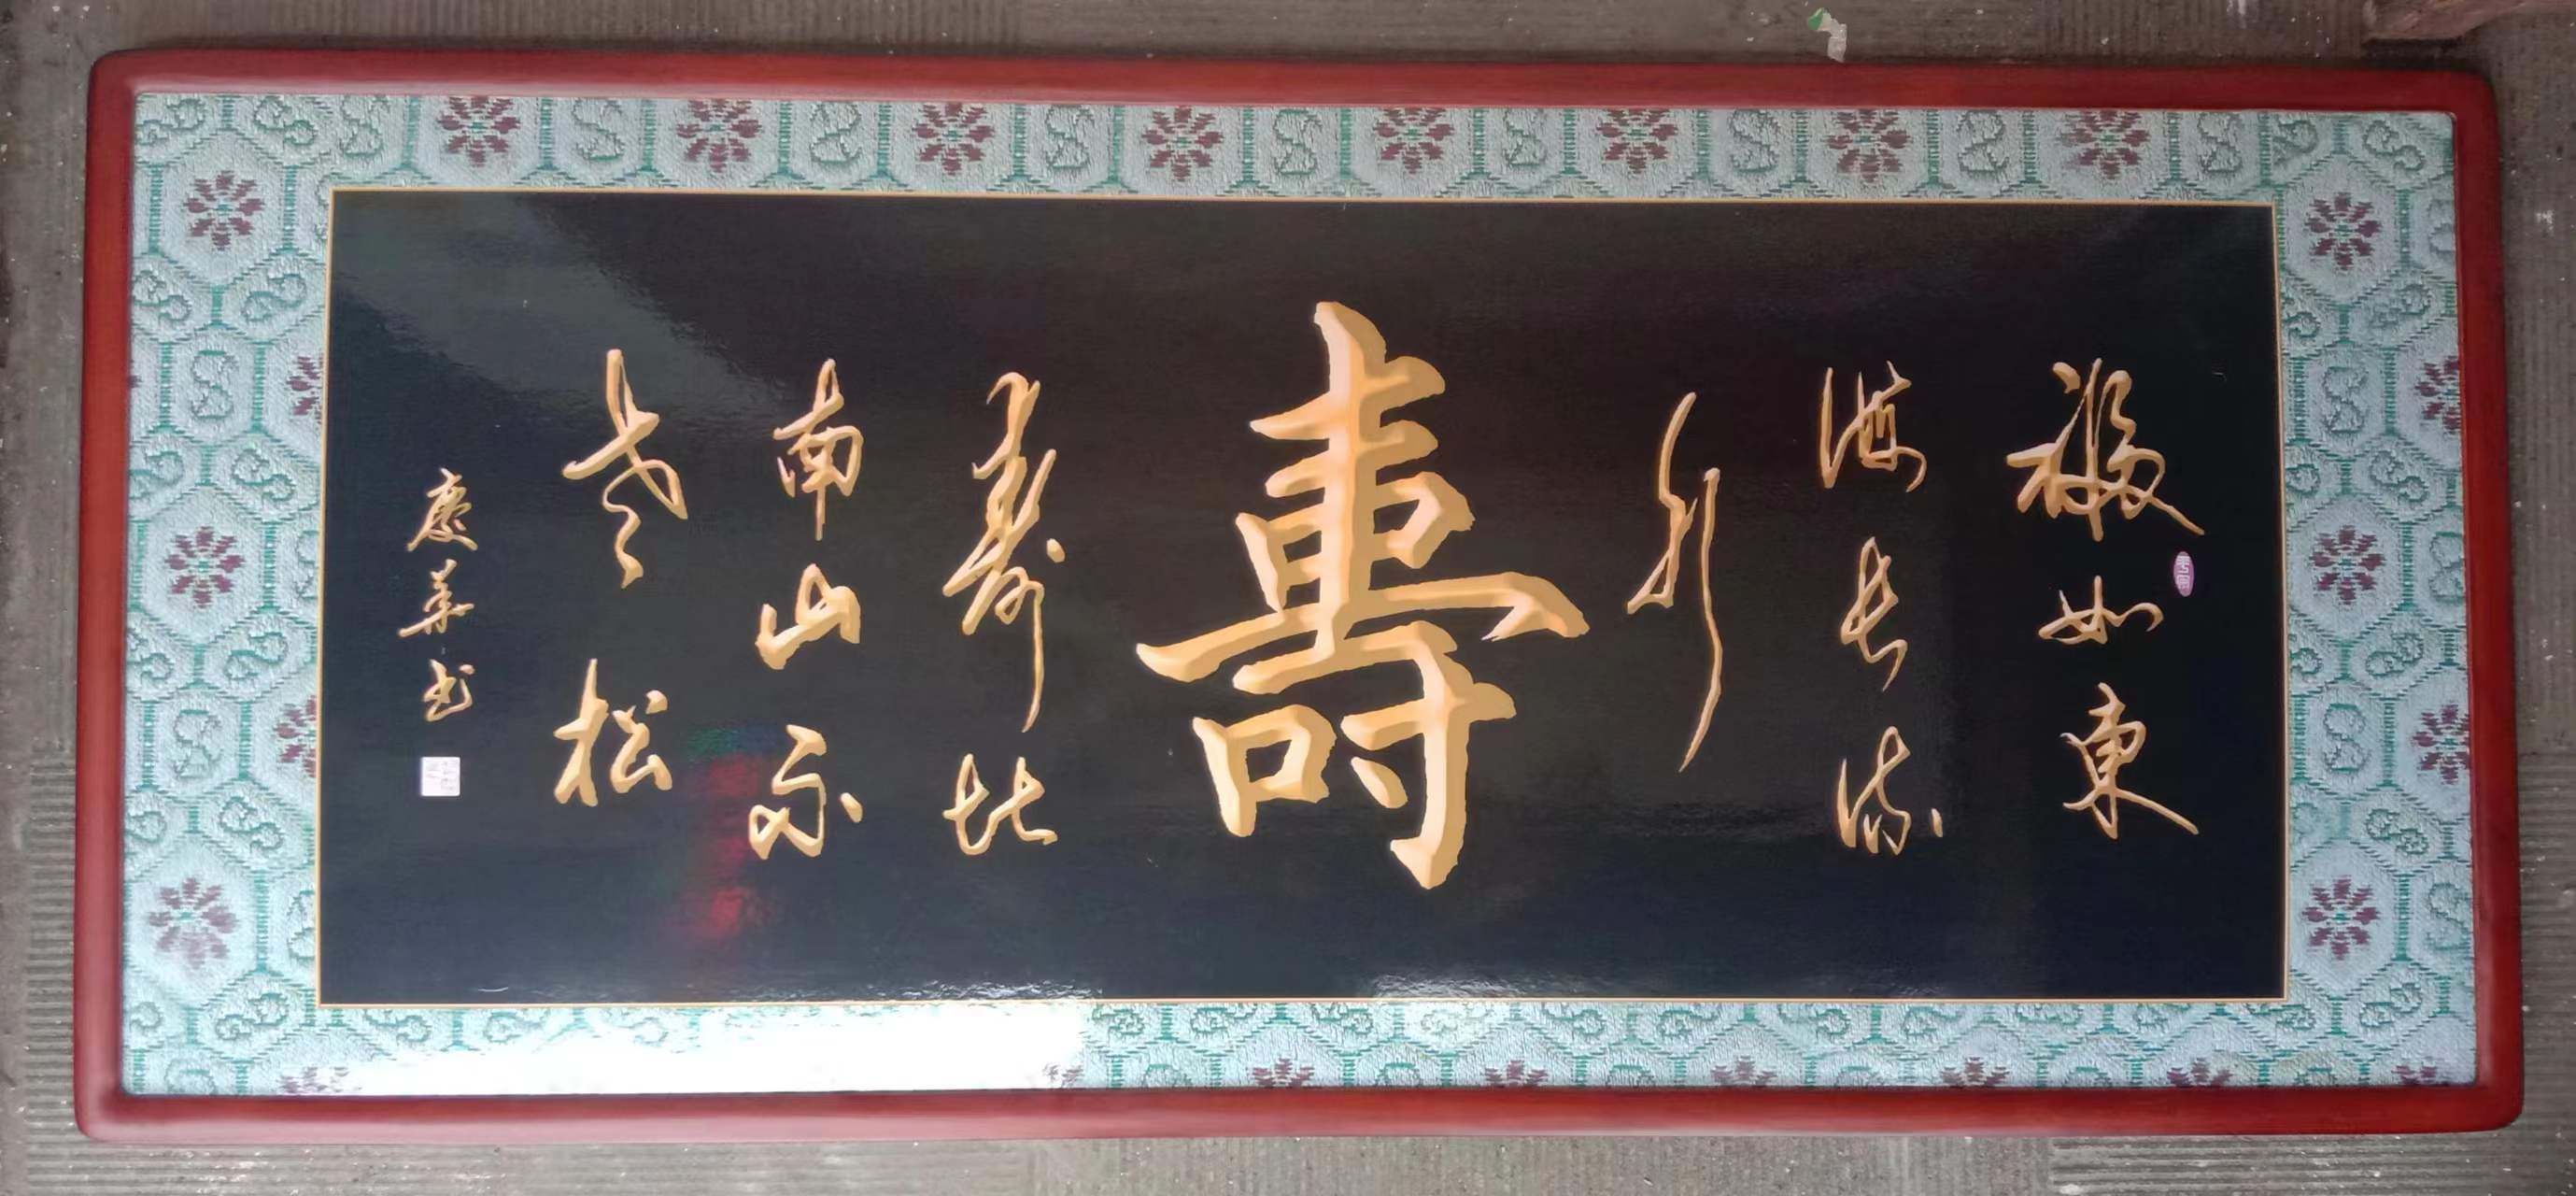 福如東
海長流
水
壽
壽比
南山不
老松
慶華书